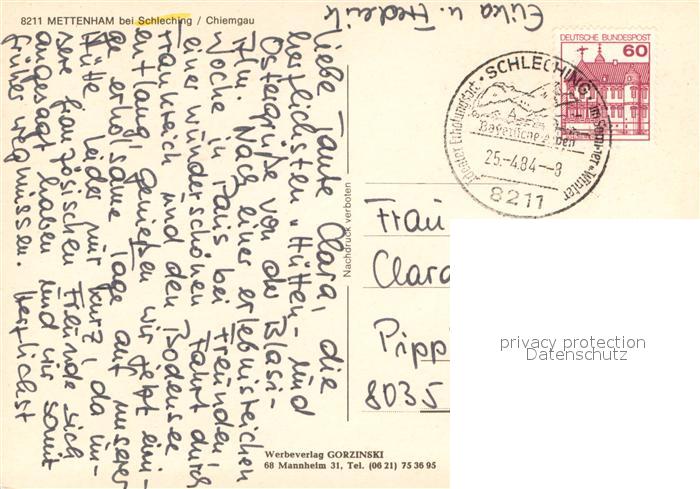 8211 METTENHAM bei Schleching / Chiemgau
Liebe Tante Clara, die
herzlichsten Hütten- und
Ostergrüße von der Blasi-
Alm. Nach einer erlebnisreichen
Woche in Paris bei Freunden
einer wunderschönen Fahrt durch
Frankreich und den Bodensee
entlang genießen wir jetzt eini-
ge erholsame Tage auf unserer
Hütte. Leider nur kurz, da un-
sere französischen Freunde sich
angesagt haben und wir somit
früher weg müssen. Herzlichst
Erika u. Frederik
Nachdruck verboten
DEUTSCHE BUNDESPOST
60
SCHLECHING
Idealer Erholungsort
im Sommer u. Winter
Bayerische Alpen
25.-4.84-8
8211
Frau
Clara
Pipp
8035
privacy protection
Datenschutz
Werbeverlag GORZINSKI
68 Mannheim 31, Tel. (06 21) 75 36 95